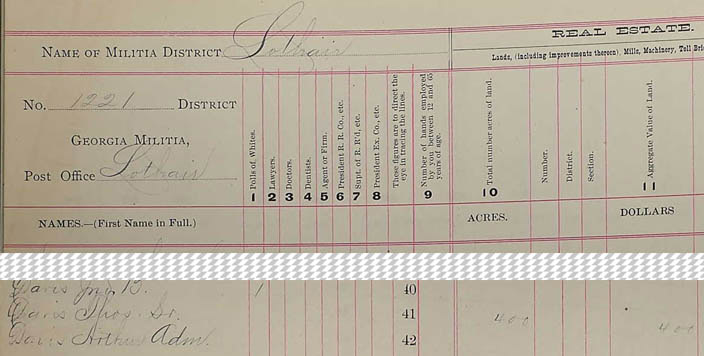 NAME OF MILITIA DISTRICT Lothair
REAL ESTATE.
Lands, (including improvements thereon), Mills, Machinery, Toll Bri
No. 1221 DISTRICT
GEORGIA MILITIA,
Post Office Lothair
Polls of Whites.
1
Lawyers.
2
Doctors.
3
Dentists.
4
Agent or Firm.
5
President R. R. Co., etc.
6
Supt. of R. R'd, etc.
7
President Ex. Co., etc.
8
These figures are to direct the eye in tracing the lines.
Number of hands employed by you between 12 and 65 years of age.
9
Total number acres of land.
10
Number.
District.
Section.
Aggregate Value of Land.
11
NAMES.—(First Name in Full.)
ACRES.
DOLLARS
Davis Jno B. 1 40
Davis Thos. Sr. 41 400
Davis Arthur Adm. 42 400